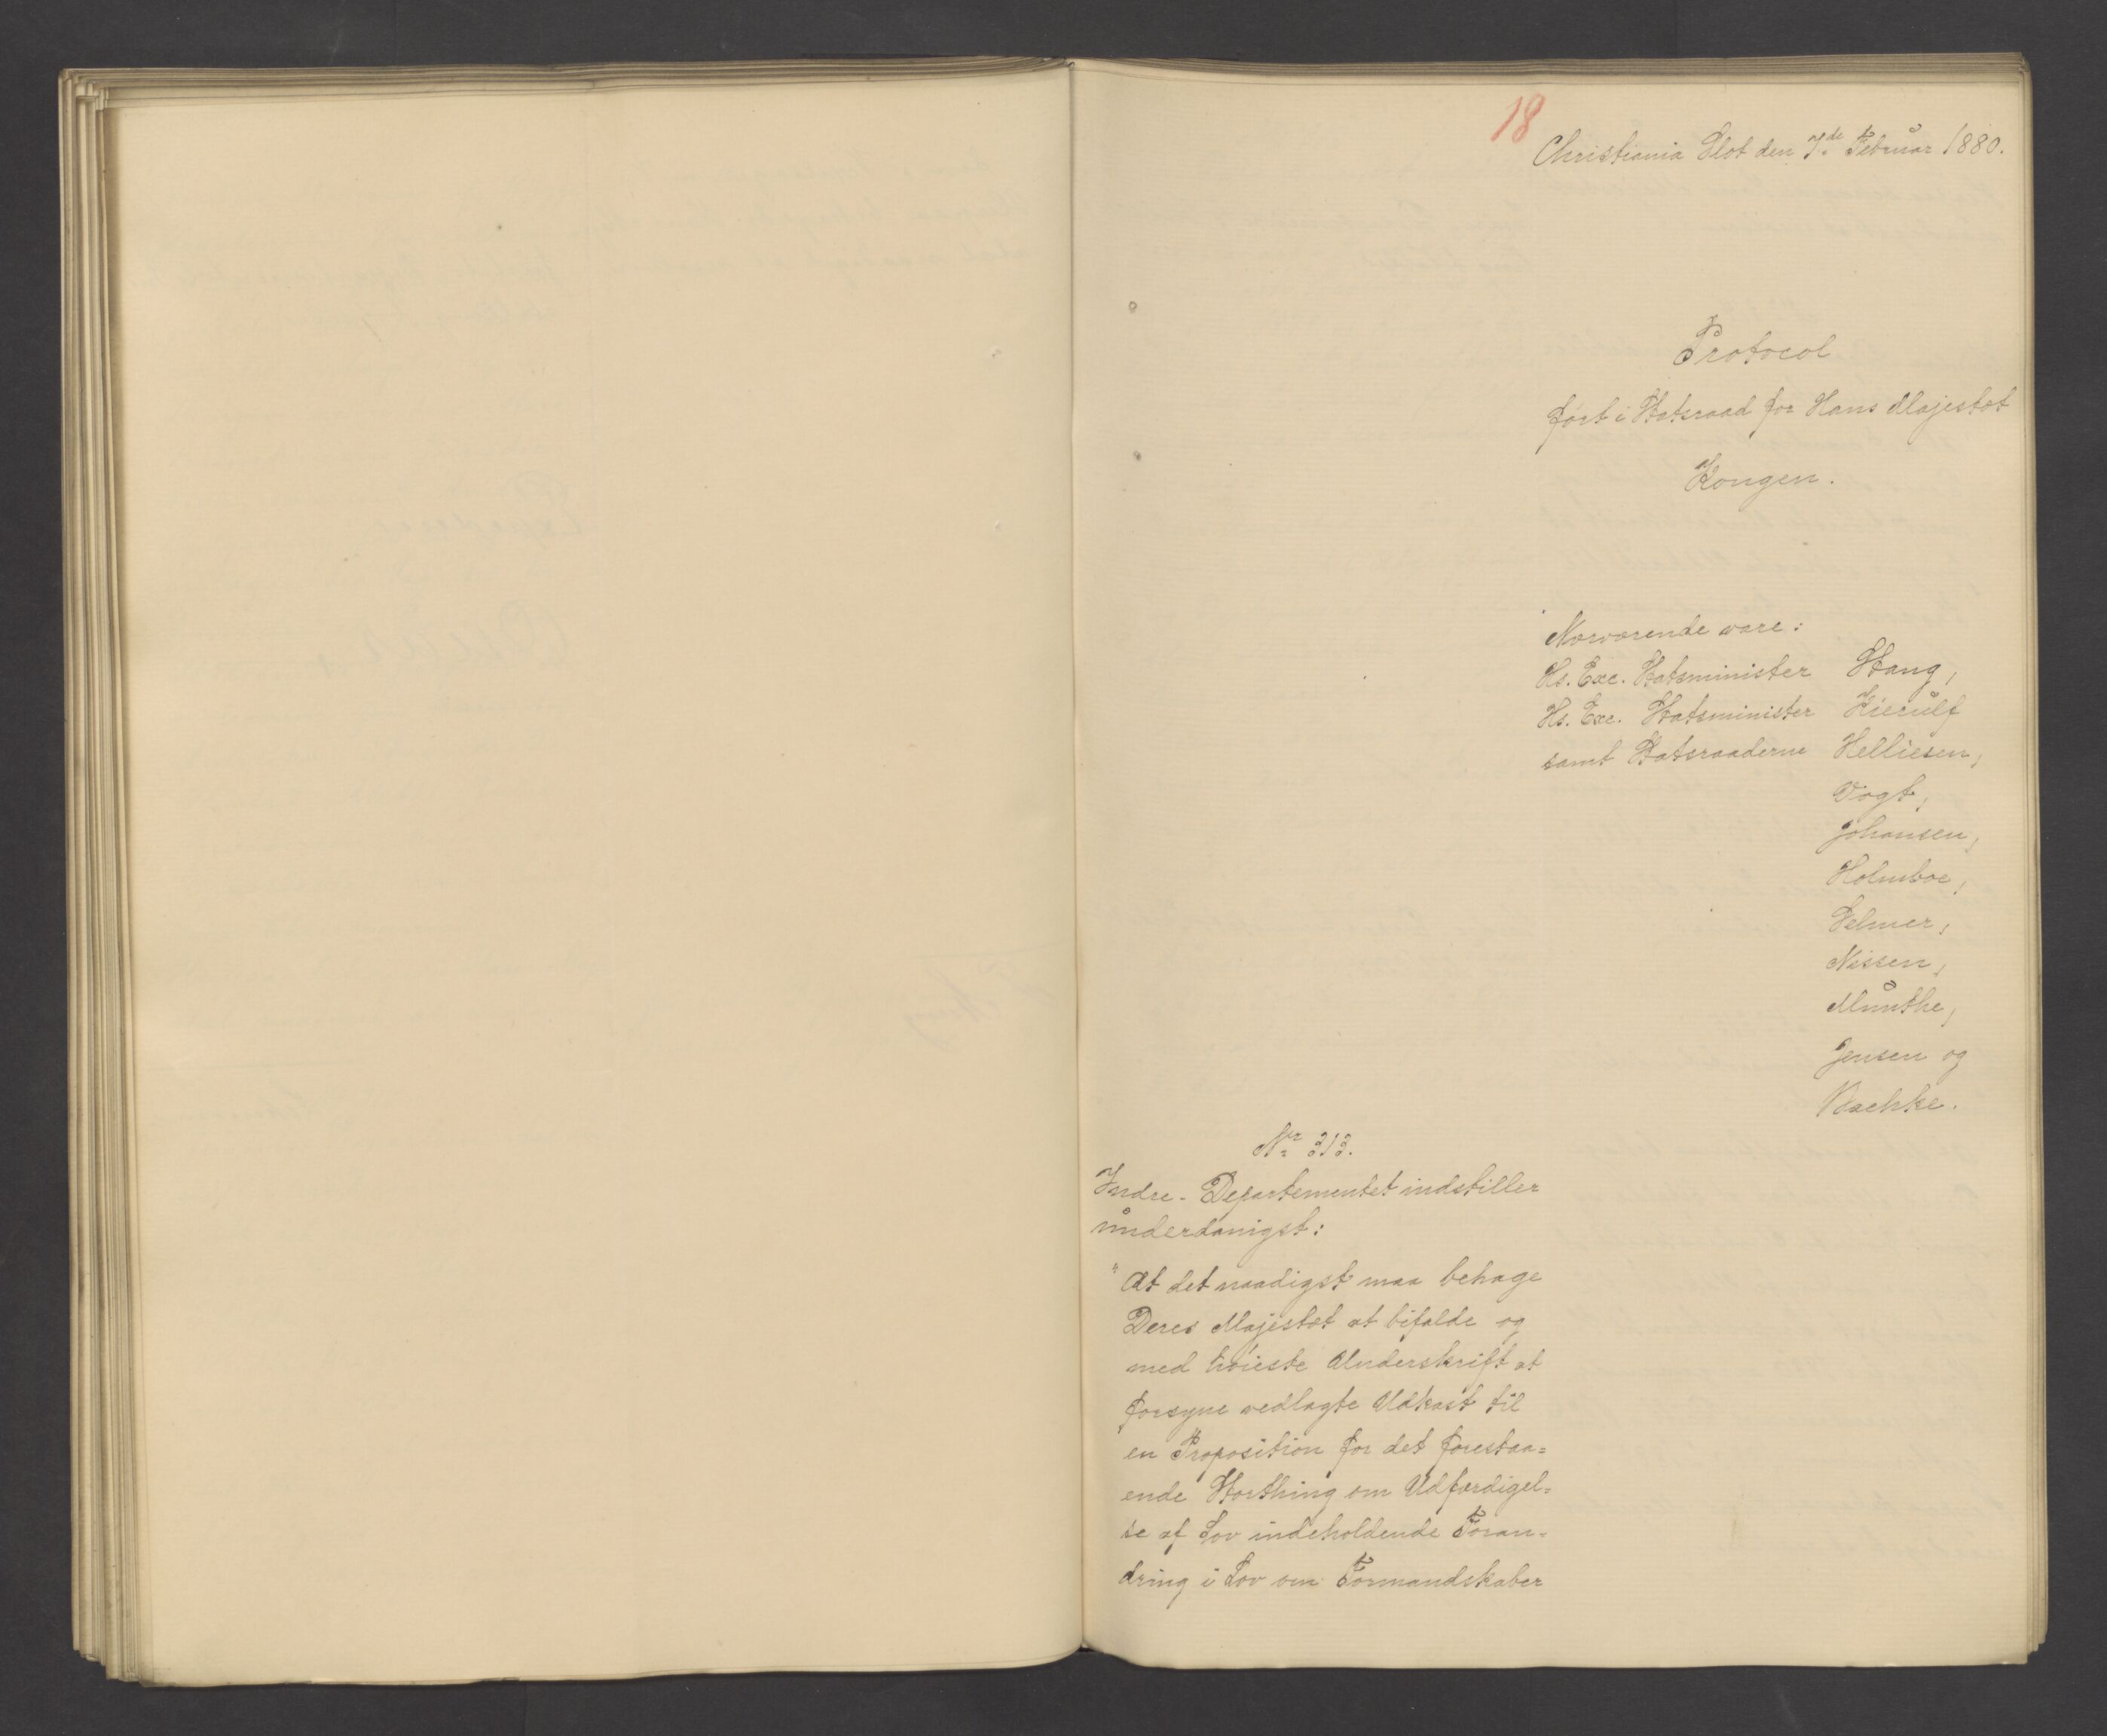 18
Christiania Slot den 7de Februar 1880.
Protocol
ført i Statsraad for Hans Majestæt
Kongen.
Nærværende vare:
Hs. Exc. Statsminister Stang,
Hs. Exc. Statsminister Kierulf
samt Statsraaderne Helliesen,
Vogt,
Johansen,
Holmboe,
Selmer,
Nissen,
Munthe,
Jensen og
Bachke.
Nr 313.
Indre-Departementet indstiller
underdanigst:
"At det naadigst maa behage
Deres Majestæt at bifalde og
med høieste Underskrift at
forsyne vedlagte Udkast til
en Proposition for det forestaa=
ende Storthing om Udfærdigel=
se af Lov indeholdende Foran=
dring i Lov om Formandskaber